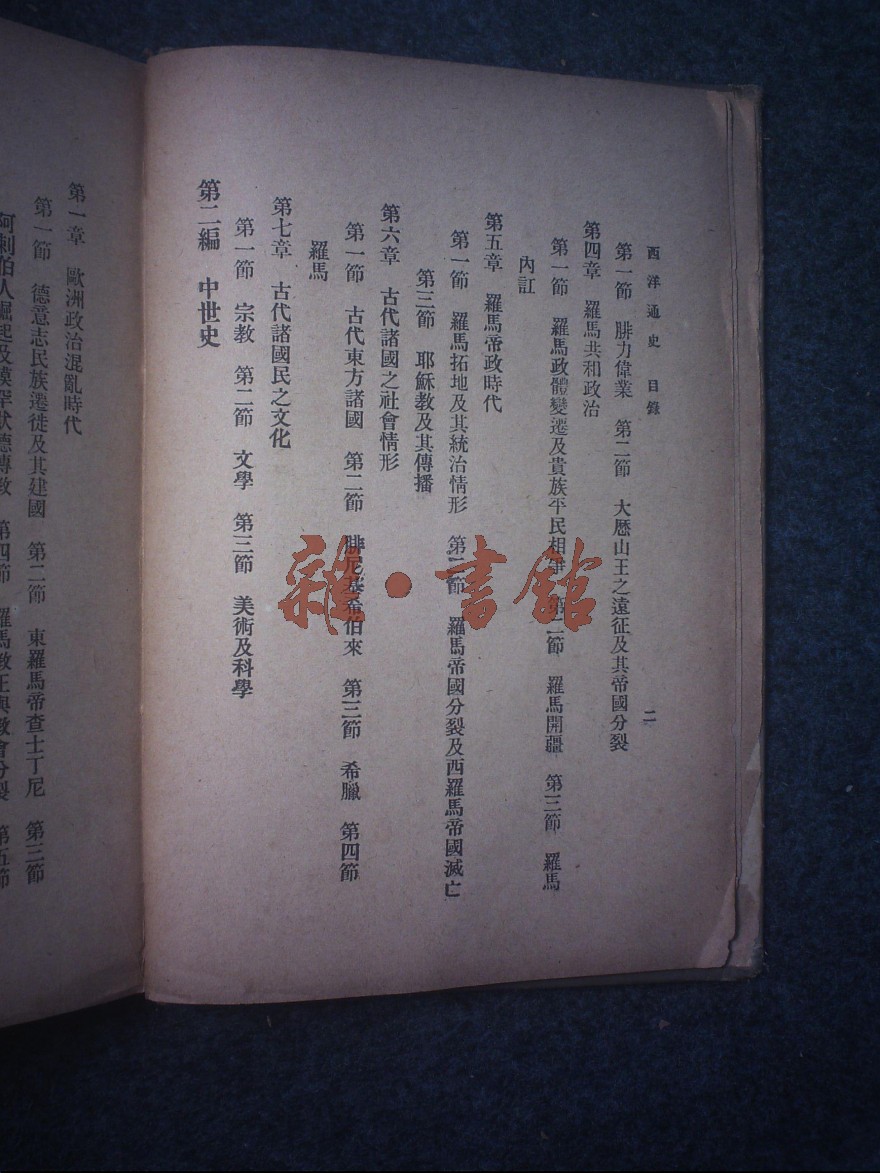 西洋通史 目錄
二
第一節 腓力偉業 第二節 大歷山王之遠征及其帝國分裂
第四章 羅馬共和政治
第一節 羅馬政體變遷及貴族平民相爭 第二節 羅馬開疆 第三節 羅馬
內訌
第五章 羅馬帝政時代
第一節 羅馬拓地及其統治情形 第二節 羅馬帝國分裂及西羅馬帝國滅亡
第三節 耶穌教及其傳播
第六章 古代諸國之社會情形
第一節 古代東方諸國 第二節 腓尼基希伯來 第三節 希臘 第四節
羅馬
第七章 古代諸國民之文化
第一節 宗教 第二節 文學 第三節 美術及科學
第二編 中世史
第一章 歐洲政治混亂時代
第一節 德意志民族遷徙及其建國 第二節 東羅馬帝查士丁尼 第三節
阿剌伯人崛起及謨罕默德傳教 第四節 羅馬教王與教會分裂 第五節
雜·書館